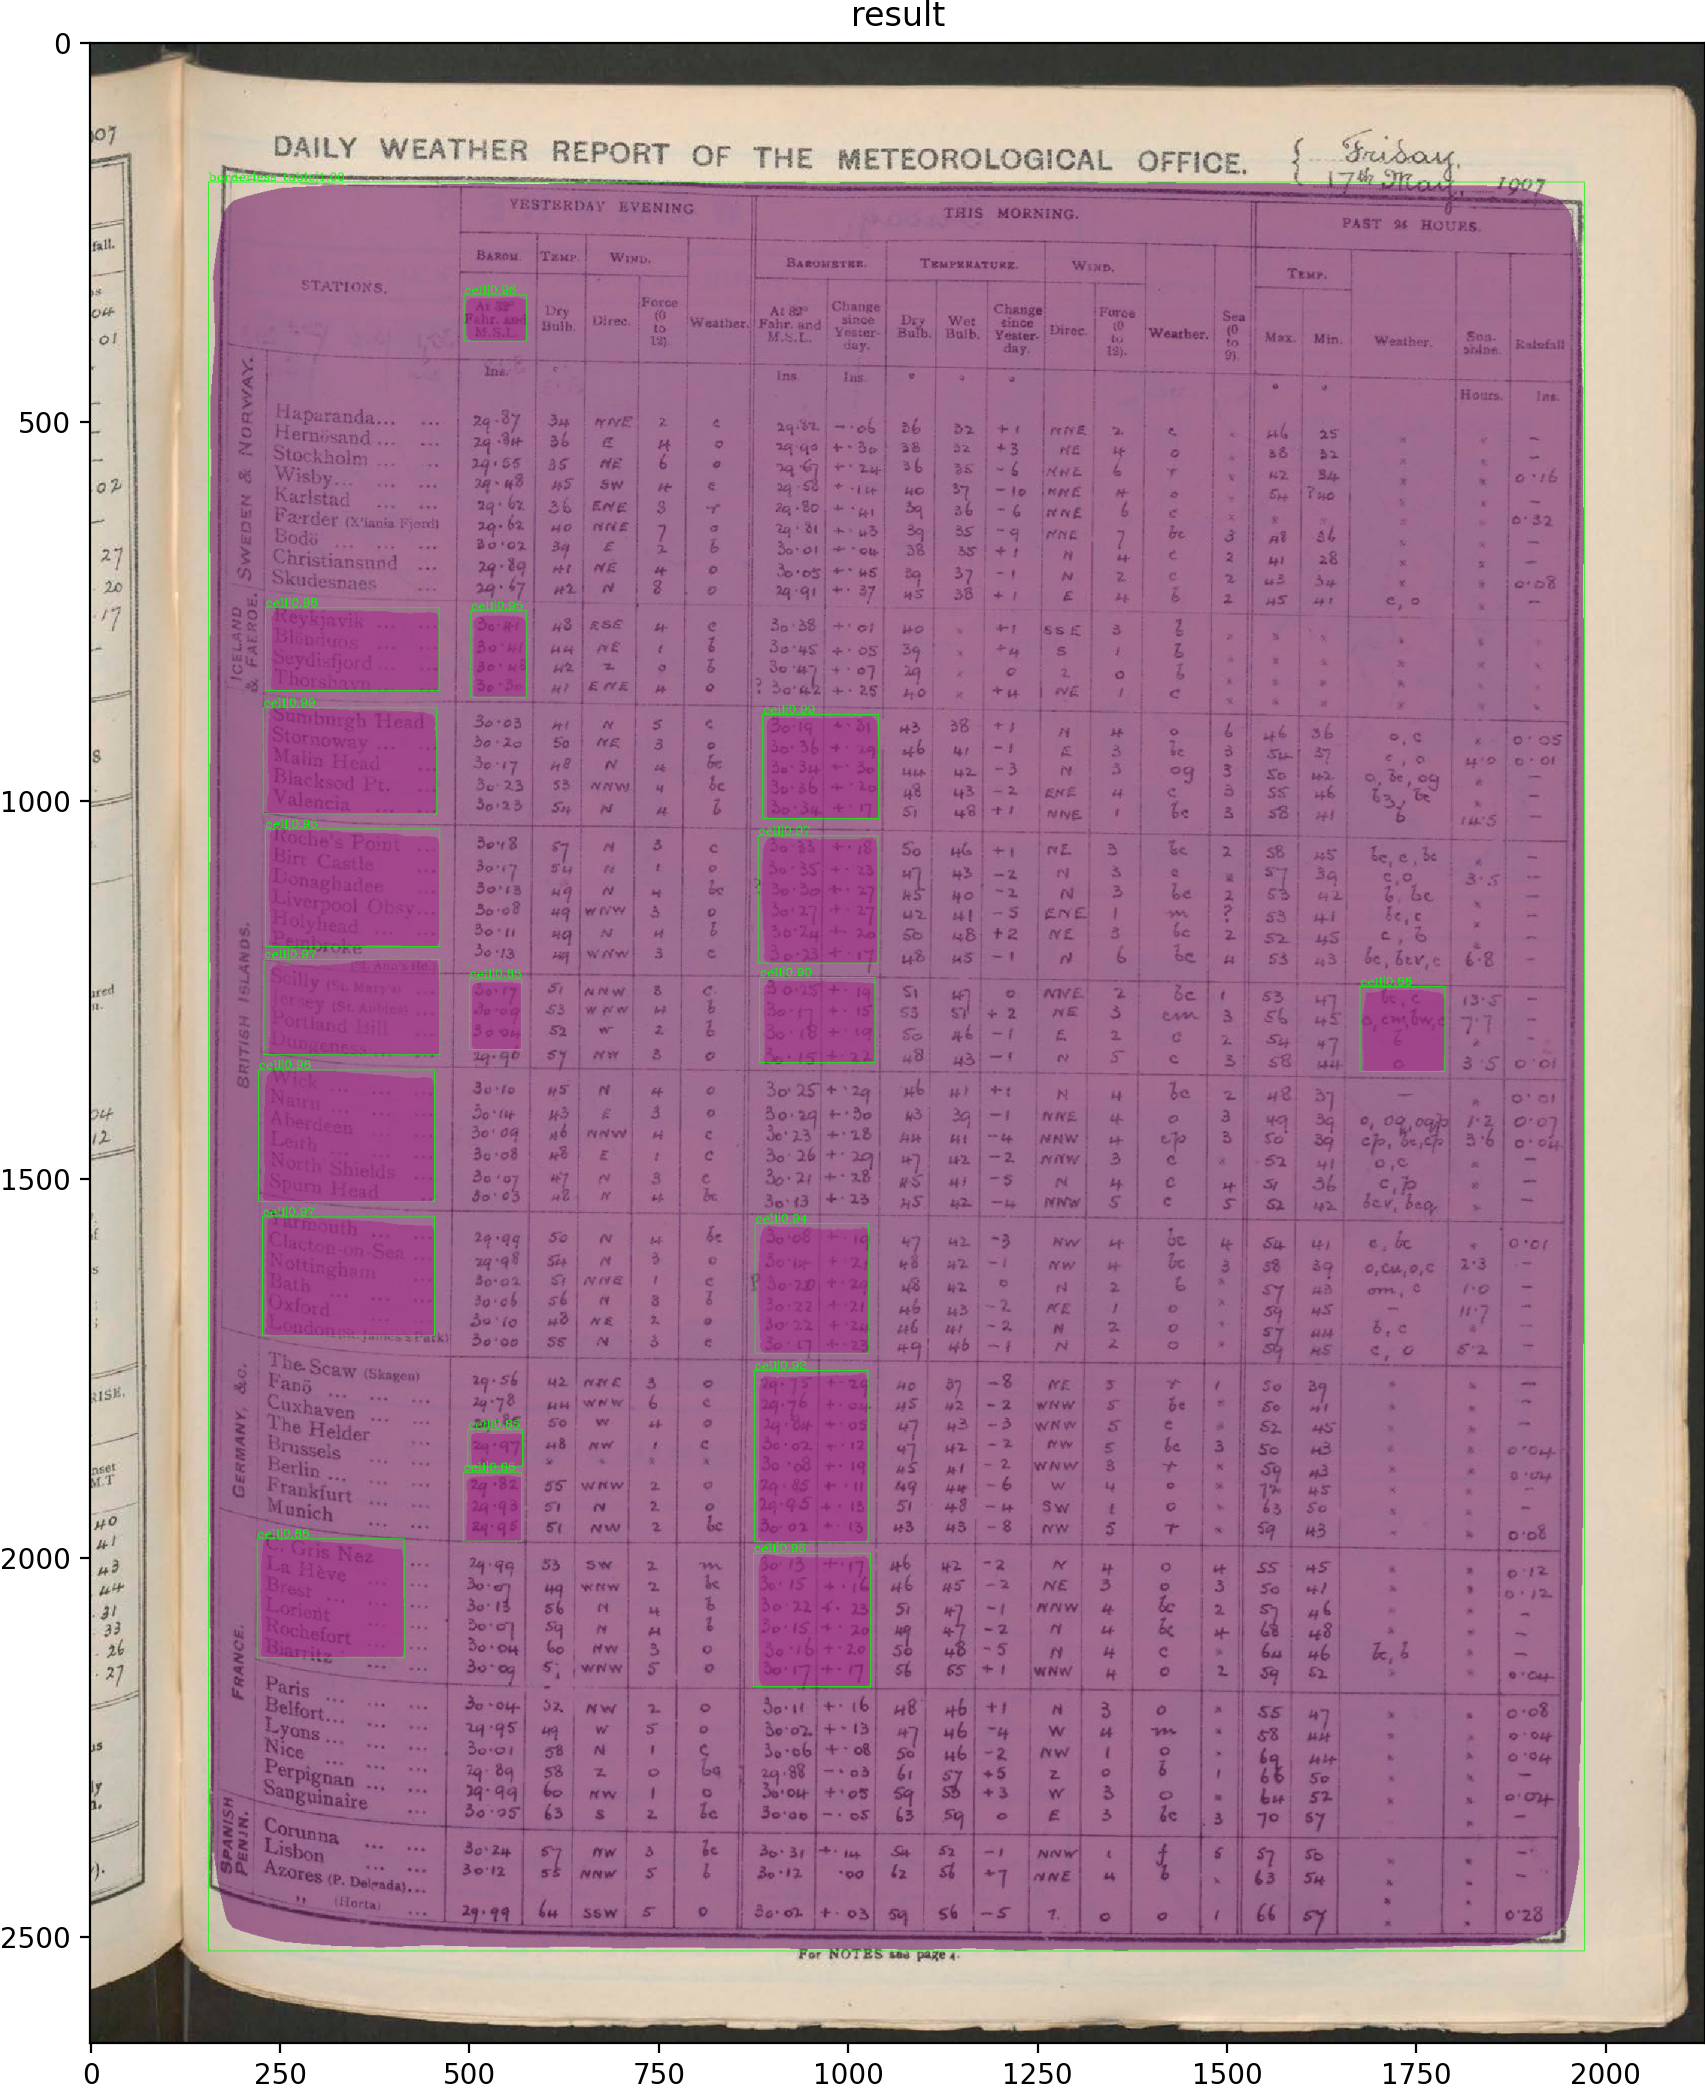 result
DAILY WEATHER REPORT OF THE METEOROLOGICAL OFFICE.
Friday,
17th May, 1907
YESTERDAY EVENING
THIS MORNING.
PAST 24 HOURS.
STATIONS.
BAROM. TEMP. WIND.
BAROMETER. TEMPERATURE. WIND.
TEMP.
At 32° Fahr. and M.S.L.
Dry Bulb.
Direc.
Force (0 to 12).
Weather.
At 32° Fahr. and M.S.L.
Change since Yester-day.
Dry Bulb.
Wet Bulb.
Change since Yester-day.
Direc.
Force (0 to 12).
Weather.
Sea (0 to 9).
Max. Min. Weather. Sun-shine. Rainfall
Ins. ° Ins. Ins. ° ° ° ° ° Hours. Ins.
SWEDEN & NORWAY.
Haparanda... ... 29.87 34 NNE 2 c 29.82 -.06 36 32 +1 NNE 2 c 46 25 –
Hernösand ... ... 29.84 36 E 4 o 29.90 +.30 38 32 +3 NE 4 o 38 32 –
Stockholm ... ... 29.55 35 NE 6 o 29.67 +.24 36 35 -6 NNE 6 r 42 34 0.16
Wisby... ... ... 29.48 45 SW 4 c 29.58 +.14 40 37 -10 NNE 4 o 54 ?40
Karlstad ... 29.62 36 ENE 3 r 29.80 +.41 39 36 -6 NNE 6 c 0.32
Færder (X'iania Fjord) 29.62 40 NNE 7 o 29.81 +.43 39 35 -9 NNE 7 bc 3 48 36 –
Bodö ... ... ... 30.02 39 E 2 b 30.01 +.04 38 35 +1 N 4 c 2 41 28 –
Christiansund ... 29.89 41 NE 4 o 30.05 +.45 39 37 -1 N 2 c 2 43 34 0.08
Skudesnaes ... 29.67 42 N 8 o 29.91 +.37 45 38 +1 E 4 b 2 45 41 c, o –
ICELAND & FAEROE.
Reykjavik ... ... 30.41 48 ESE 4 c 30.38 +.01 40 +1 SSE 3 b
Blonduos ... ... 30.41 44 NE 1 b 30.45 +.05 39 +4 S 1 b
Seydisfjord ... ... 30.48 42 Z 0 b 30.47 +.07 29 0 Z 0 b
Thorshavn ... 30.30 41 ENE 4 o ? 30.42 +.25 40 +4 NE 1 c
BRITISH ISLANDS.
Sumburgh Head 30.03 41 N 5 c 30.19 +.31 43 38 +1 N 4 o 6 46 36 o, c 0.05
Stornoway ... ... 30.20 50 NE 3 o 30.36 +.29 46 41 -1 E 3 bc 3 54 37 c, o 4.0 0.01
Malin Head ... 30.17 48 N 4 bc 30.34 +.30 44 42 -3 N 3 og 3 50 42 o, bc, og –
Blacksod Pt. ... 30.23 53 NNW 4 bc 30.36 +.20 48 43 -2 ENE 4 c 3 55 46 –
Valencia ... ... 30.23 54 N 4 b 30.34 +.17 51 48 +1 NNE 1 bc 3 58 41 b 14.5 –
Roche's Point ... 30.18 57 N 3 c 30.33 +.18 50 46 +1 NE 3 bc 2 58 45 bc, c, bc –
Birr Castle ... 30.17 54 N 1 o 30.35 +.23 47 43 -2 N 3 c 57 39 c, o 3.5 –
Donaghadee ... 30.13 49 N 4 bc ? 30.30 +.27 45 40 -2 N 3 bc 2 53 42 b, bc –
Liverpool Obsy... 30.08 49 WNW 3 o 30.27 +.27 42 41 -5 ENE 1 m ? 53 41 bc, c –
Holyhead ... 30.11 49 N 4 b 30.24 +.20 50 48 +2 NE 3 bc 2 52 45 c, b –
Pembroke (St. Ann's Hd.) 30.13 49 WNW 3 c 30.23 +.17 48 45 -1 N 6 bc 4 53 43 bc, bcv, c 6.8 –
Scilly (St. Mary's) ... 30.17 51 NNW 3 c 30.25 +.19 51 47 0 NNE 2 bc 1 53 47 bc, c 13.5 –
Jersey (St. Aubins) ... 30.09 53 WNW 4 b 30.17 +.15 53 51 +2 NE 3 cm 3 56 45 o, cm, bw, c 7.7 –
Portland Bill ... 30.04 52 W 2 b 30.18 +.19 50 46 -1 E 2 c 2 54 47 b –
Dungeness ... ... 29.96 57 NW 3 o 30.15 +.22 48 43 -1 N 5 c 3 58 44 o 3.5 0.01
Wick ... ... ... 30.10 45 N 4 o 30.25 +.29 46 41 +1 N 4 bc 2 48 37 – 0.01
Nairn ... ... ... 30.14 43 E 3 o 30.29 +.30 43 39 -1 NNE 4 o 3 49 39 o, og, ogp 1.2 0.07
Aberdeen ... ... 30.09 46 NNW 4 c 30.23 +.28 44 41 -4 NNW 4 cp 3 50 39 cp, bc, cp 3.6 0.04
Leith ... ... ... 30.08 48 E 1 c 30.26 +.29 47 42 -2 NNW 3 c 52 41 o, c –
North Shields ... 30.07 47 N 3 c 30.21 +.28 45 41 -5 N 4 c 4 51 36 c, p –
Spurn Head ... 30.03 48 N 4 bc 30.13 +.23 45 42 -4 NNW 5 c 5 52 42 bcv, bcq –
Yarmouth ... ... 29.99 50 N 4 bc 30.08 +.19 47 42 -3 NW 4 bc 4 54 41 c, bc 0.01
Clacton-on-Sea ... 29.98 54 N 3 o 30.14 +.21 48 42 -1 NW 4 bc 3 58 39 o, cu, o, c 2.3 –
Nottingham ... 30.02 51 NNE 1 c ? 30.20 +.29 48 42 0 N 2 b 57 43 om, c 1.0 –
Bath ... ... ... 30.06 56 N 3 b 30.22 +.21 46 43 -2 NE 1 o 59 45 – 11.7 –
Oxford ... ... 30.10 48 NE 2 o 30.22 +.24 46 41 -2 N 2 o 57 44 b, c –
London (St. James's Park) 30.00 55 N 3 c 30.17 +.23 49 46 -1 N 2 o 59 45 c, o 5.2 –
GERMANY, &c.
The Scaw (Skagen) 29.56 42 NNE 3 o 29.75 +.29 40 37 -8 NE 5 r 1 50 39 –
Fanö ... ... ... 29.78 44 WNW 6 c 29.76 +.04 45 42 -2 WNW 5 bc 50 41 –
Cuxhaven ... ... 50 W 4 o 29.84 +.05 47 43 -3 WNW 5 c 52 45 –
The Helder ... 29.97 48 NW 1 c 30.02 +.12 47 42 -2 NW 5 bc 3 50 43 0.04
Brussels ... 30.08 +.19 45 41 -2 WNW 3 r 59 43 0.04
Berlin ... ... ... 29.82 55 WNW 2 o 29.85 +.11 49 44 -6 W 4 o 72 45 –
Frankfurt ... ... 29.93 51 N 2 o 29.95 +.13 51 48 -4 SW 1 o 63 50 –
Munich ... ... 29.95 51 NW 2 bc 30.02 +.13 43 43 -8 NW 5 r 59 43 0.08
FRANCE.
C. Gris Nez ... 29.99 53 SW 2 m 30.13 +.17 46 42 -2 N 4 o 4 55 45 0.12
La Hève ... ... 30.07 49 WNW 2 bc 30.15 +.16 46 45 -2 NE 3 o 3 50 41 0.12
Brest ... ... ... 30.13 56 N 4 b 30.22 +.23 51 47 -1 NNW 4 bc 2 57 46 –
Lorient ... ... 30.07 59 N 4 b 30.15 +.20 49 47 -2 N 4 bc 4 68 48 –
Rochefort ... ... 30.04 60 NW 3 o 30.16 +.20 50 48 -5 N 4 c 64 46 bc, b –
Biarritz ... ... 30.09 WNW 5 o 30.17 +.17 56 55 +1 WNW 4 o 2 59 52 0.04
Paris ... ... ... 30.04 52 NW 2 o 30.11 +.16 48 46 +1 N 3 o 55 47 0.08
Belfort... ... ... 29.95 49 W 5 o 30.02 +.13 47 46 -4 W 4 m 58 44 0.04
Lyons ... ... ... 30.01 58 N 1 c 30.06 +.08 50 46 -2 NW 1 o 69 44 0.04
Nice ... ... ... 29.89 58 Z 0 bq 29.88 -.03 61 57 +5 Z 0 b 1 66 50 –
Perpignan ... ... 29.99 60 NW 1 o 30.04 +.05 59 53 +3 W 3 o 64 52 0.04
Sanguinaire ... 30.05 63 S 2 bc 30.00 -.05 63 59 0 E 3 bc 3 70 57 –
SPANISH PENIN.
Corunna ... ... 30.24 57 NW 3 bc 30.31 +.14 54 52 -1 NNW 1 f 5 57 50 –
Lisbon ... ... 30.12 55 NNW 5 b 30.12 .00 62 56 +7 NNE 4 b 63 54 –
Azores (P. Delgada)...
,, (Horta) ... 29.99 64 SSW 5 o 30.02 +.03 59 56 -5 ? 0 o 1 66 57 0.28
For NOTES see page 4.
0
500
1000
1500
2000
2500
0 250 500 750 1000 1250 1500 1750 2000